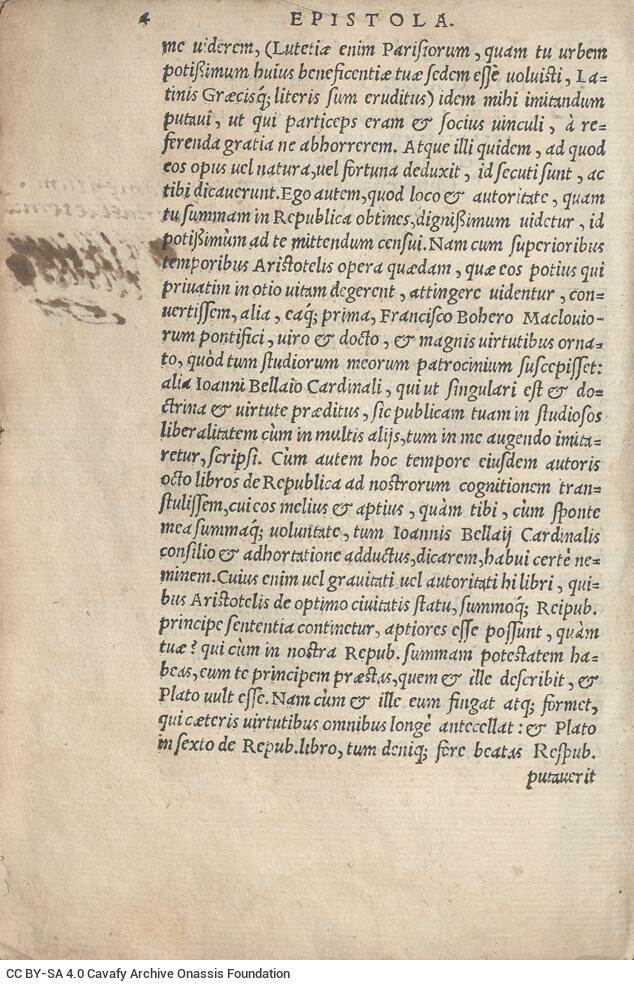 4 EPISTOLA.
me uiderem, (Lutetiæ enim Parisiorum, quam tu urbem
potißimum huius beneficentiæ tuæ sedem esse uoluisti, La=
tinis Græcisq; literis sum eruditus) idem mihi imitandum
putaui, ut qui particeps eram & socius uinculi, à re=
ferenda gratia ne abhorrerem. Atque illi quidem, ad quod
eos opus uel natura, uel fortuna deduxit, id secuti sunt, ac
tibi dicauerunt. Ego autem, quod loco & autoritate, quam
tu summam in Republica obtines, dignißimum uidetur, id
potißimùm ad te mittendum censui. Nam cum superioribus
temporibus Aristotelis opera quædam, quæ eos potius qui
priuatim in otio uitam degerent, attingere uidentur, con=
uertissem, alia, eaq; prima, Francisco Bohero Maclouio-
rum pontifici, uiro & docto, & magnis uirtutibus orna=
to, quòd tum studiorum meorum patrocinium suscepisset:
alia Ioanni Bellaio Cardinali, qui ut singulari est & do=
ctrina & uirtute præditus, sic publicam tuam in studiosos
liberalitatem cùm in multis alijs, tum in me augendo imita=
retur, scripsi. Cùm autem hoc tempore eiusdem autoris
octo libros de Republica ad nostrorum cognitionem tran=
stulissem, cui eos melius & aptius, quàm tibi, cùm sponte
mea summaq; uoluntate, tum Ioannis Bellaij Cardinalis
consilio & adhortatione adductus, dicarem, habui certè ne=
minem. Cuius enim uel grauitati uel autoritati hi libri, qui=
bus Aristotelis de optimo ciuitatis statu, summoq; Reipub.
principe sententia continetur, aptiores esse possunt, quàm
tuæ? qui cùm in nostra Repub. summam potestatem ha=
beas, eum te principem præstas, quem & ille describit, &
Plato uult esse. Nam cùm & ille eum fingat atq; formet,
qui cæteris uirtutibus omnibus longè antecellat: & Plato
in sexto de Repub. libro, tum deniq; fere beatas Respub.
putauerit
CC BY-SA 4.0 Cavafy Archive Onassis Foundation